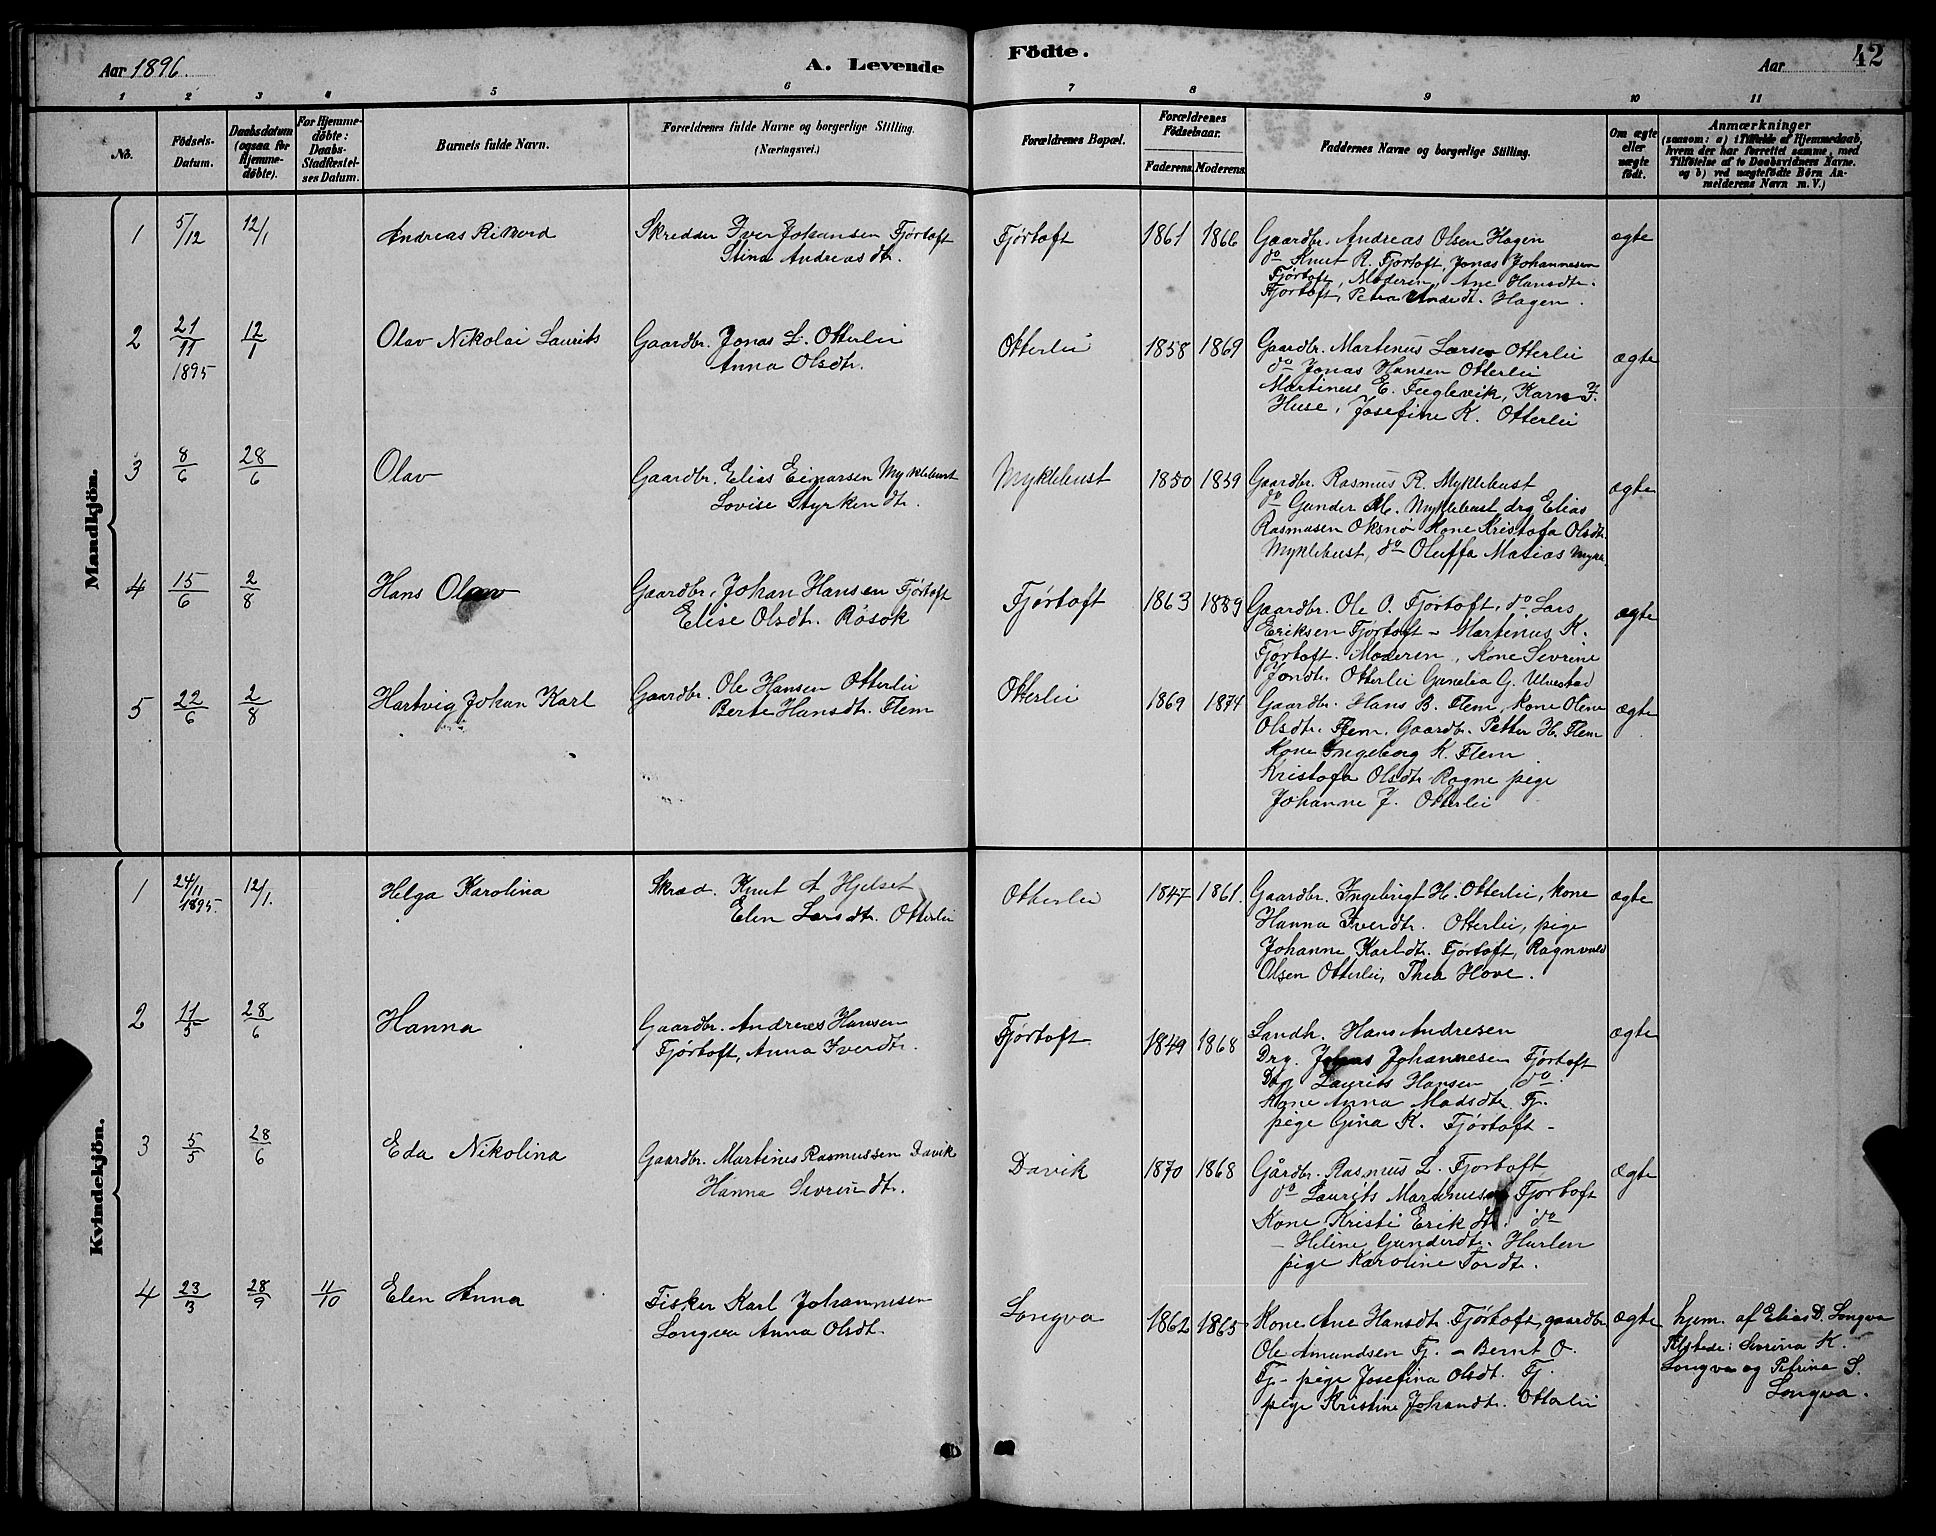 Aar 1896.
A. Levende
Födte.
Aar
42
1 2 3 4 5 6 7 8 9 10 11
No.
Födsels-
Datum.
Daabsdatum
(ogsaa for
Hjemme-
döbte).
For Hjemme-
döbte:
Daabs-
Stadfæstel-
ses Datum.
Barnets fulde Navn.
Forældrenes fulde Navne og borgerlige Stilling.
(Næringsvei.)
Forældrenes Bopæl.
Forældrenes
Födselsaar.
Faderens. Moderens.
Faddernes Navne og borgerlige Stilling.
Om ægte
eller
uægte
födt.
Anmærkninger
(saasom: a) i Tilfælde af Hjemmedaab,
hvem der har forrettet samme, med
Tilföielse af to Daabsvidners Navne.
og b) ved uægtefödte Börn An-
melderens Navn m. V.)
Mandkjön.
1 5/12 12/1 Andreas Rikord
Skredder Iver Johansen Fjörtoft
Stina Andreasdtr.
Fjörtoft 1861 1866
Gaardbr. Andreas Olsen Hagen
do Knut R. Fjortoft, Jonas Johannesen
Fjörtoft, Moderen, Ane Hansdtr.
Fjörtoft, Petra Andrdt. Hagen.
ægte
2 21/11 1895 12/1 Olav Nikolai Laurits
Gaardbr. Jonas L. Otterlei
Anna Olsdtr.
Otterlei 1858 1869
Gaardbr. Martinus Larsen Otterlei
do Jonas Hansen Otterlei
Martinus E. Fuglevik, Karn J.
Huse, Josefine K. Otterlei
ægte
3 8/6 28/6 Olav
Gaardbr. Elias Einarsen Myklebust
Lovise Styrkendtr.
Myklebust 1850 1859
Gaardbr. Rasmus R. Myklebust
do Gunder M. Myklebust drg Elias
Rasmusen Oksnö Kone Kristofa Olsdtr.
Myklebust, do Oluffa Matias Mykle
ægte
4 15/6 2/8 Hans Olav
Gaardbr. Johan Hansen Fjörtoft
Elise Olsdtr. Rösok
Fjörtoft 1863 1859
Gaardbr. Ole O. Fjortoft, do Lars
Eriksen Fjörtoft - Martinus K.
Fjörtoft. Moderen, Kone Sevrine
Jondtr. Otterlei Gunelia G. Ulvestad
ægte
5 22/6 2/8 Hartvig Johan Karl
Gaardbr. Ole Hansen Otterlei
Berte Hansdtr. Flem
Otterlei 1869 1874
Gaardbr. Hans B. Flem, Kone Oline
Olsdtr. Flem. Gaardbr. Petter H. Flem
Kone Ingeborg K. Flem.
Kristofa Olsdtr Rogne pige
Johanne J. Otterlei
ægte
Kvindekjön.
1 24/11 1895. 12/1. Helga Karolina
Skræd. Knut A Hjelset
Elen Larsdtr. Otterlei
Otterlei 1847 1861.
Gaardbr. Ingebrigt H. Otterlei, kone
Hanna Iverdtr. Otterlei, pige
Johanne Karldtr. Fjörtoft, Ragnvald
Olsen Otterlei, Thea Hove.
ægte
2 11/5 28/6 Hanna
Gaardbr. Andreas Hansen
Fjörtoft, Anna Iverdtr.
Fjörtoft 1849 1868
Landh. Hans Andresen
Drg. Jonas Johannesen Fjörtoft
Drg Laurits Hansen do.
Kone Anna Madsdtr. Fj.
pige Gina K. Fjörtoft -
ægte
3 5/5 28/6 Eda Nikolina
Gaardbr. Martinus Rasmussen Davik
Hanna Sevrindtr.
Davik 1870 1868
Gårdbr. Rasmus L. Fjortoft
do Laurits Martinusen Fjortoft
Kone Kristi Erikdt. do
- Heline Gunderdtr. Hurlen
pige Karoline Tordtr.
Ægte
4 23/3 28/9 11/10 Elen Anna
Fisker Karl Johannesen
Longva Anna Olsdt.
Longva 1862 1865
Kone Ane Hansdt. Fjörtoft, gaardbr
Ole Amundsen Fj. - Bernt O.
Fj - pige Josefina Olsdt. Fj.
pige Kristine Johandtr. Otterlei
ægte
hjem. af Elias D. Longva
Tilstede: Sevrina K.
Longva og Petrina S.
Longva.